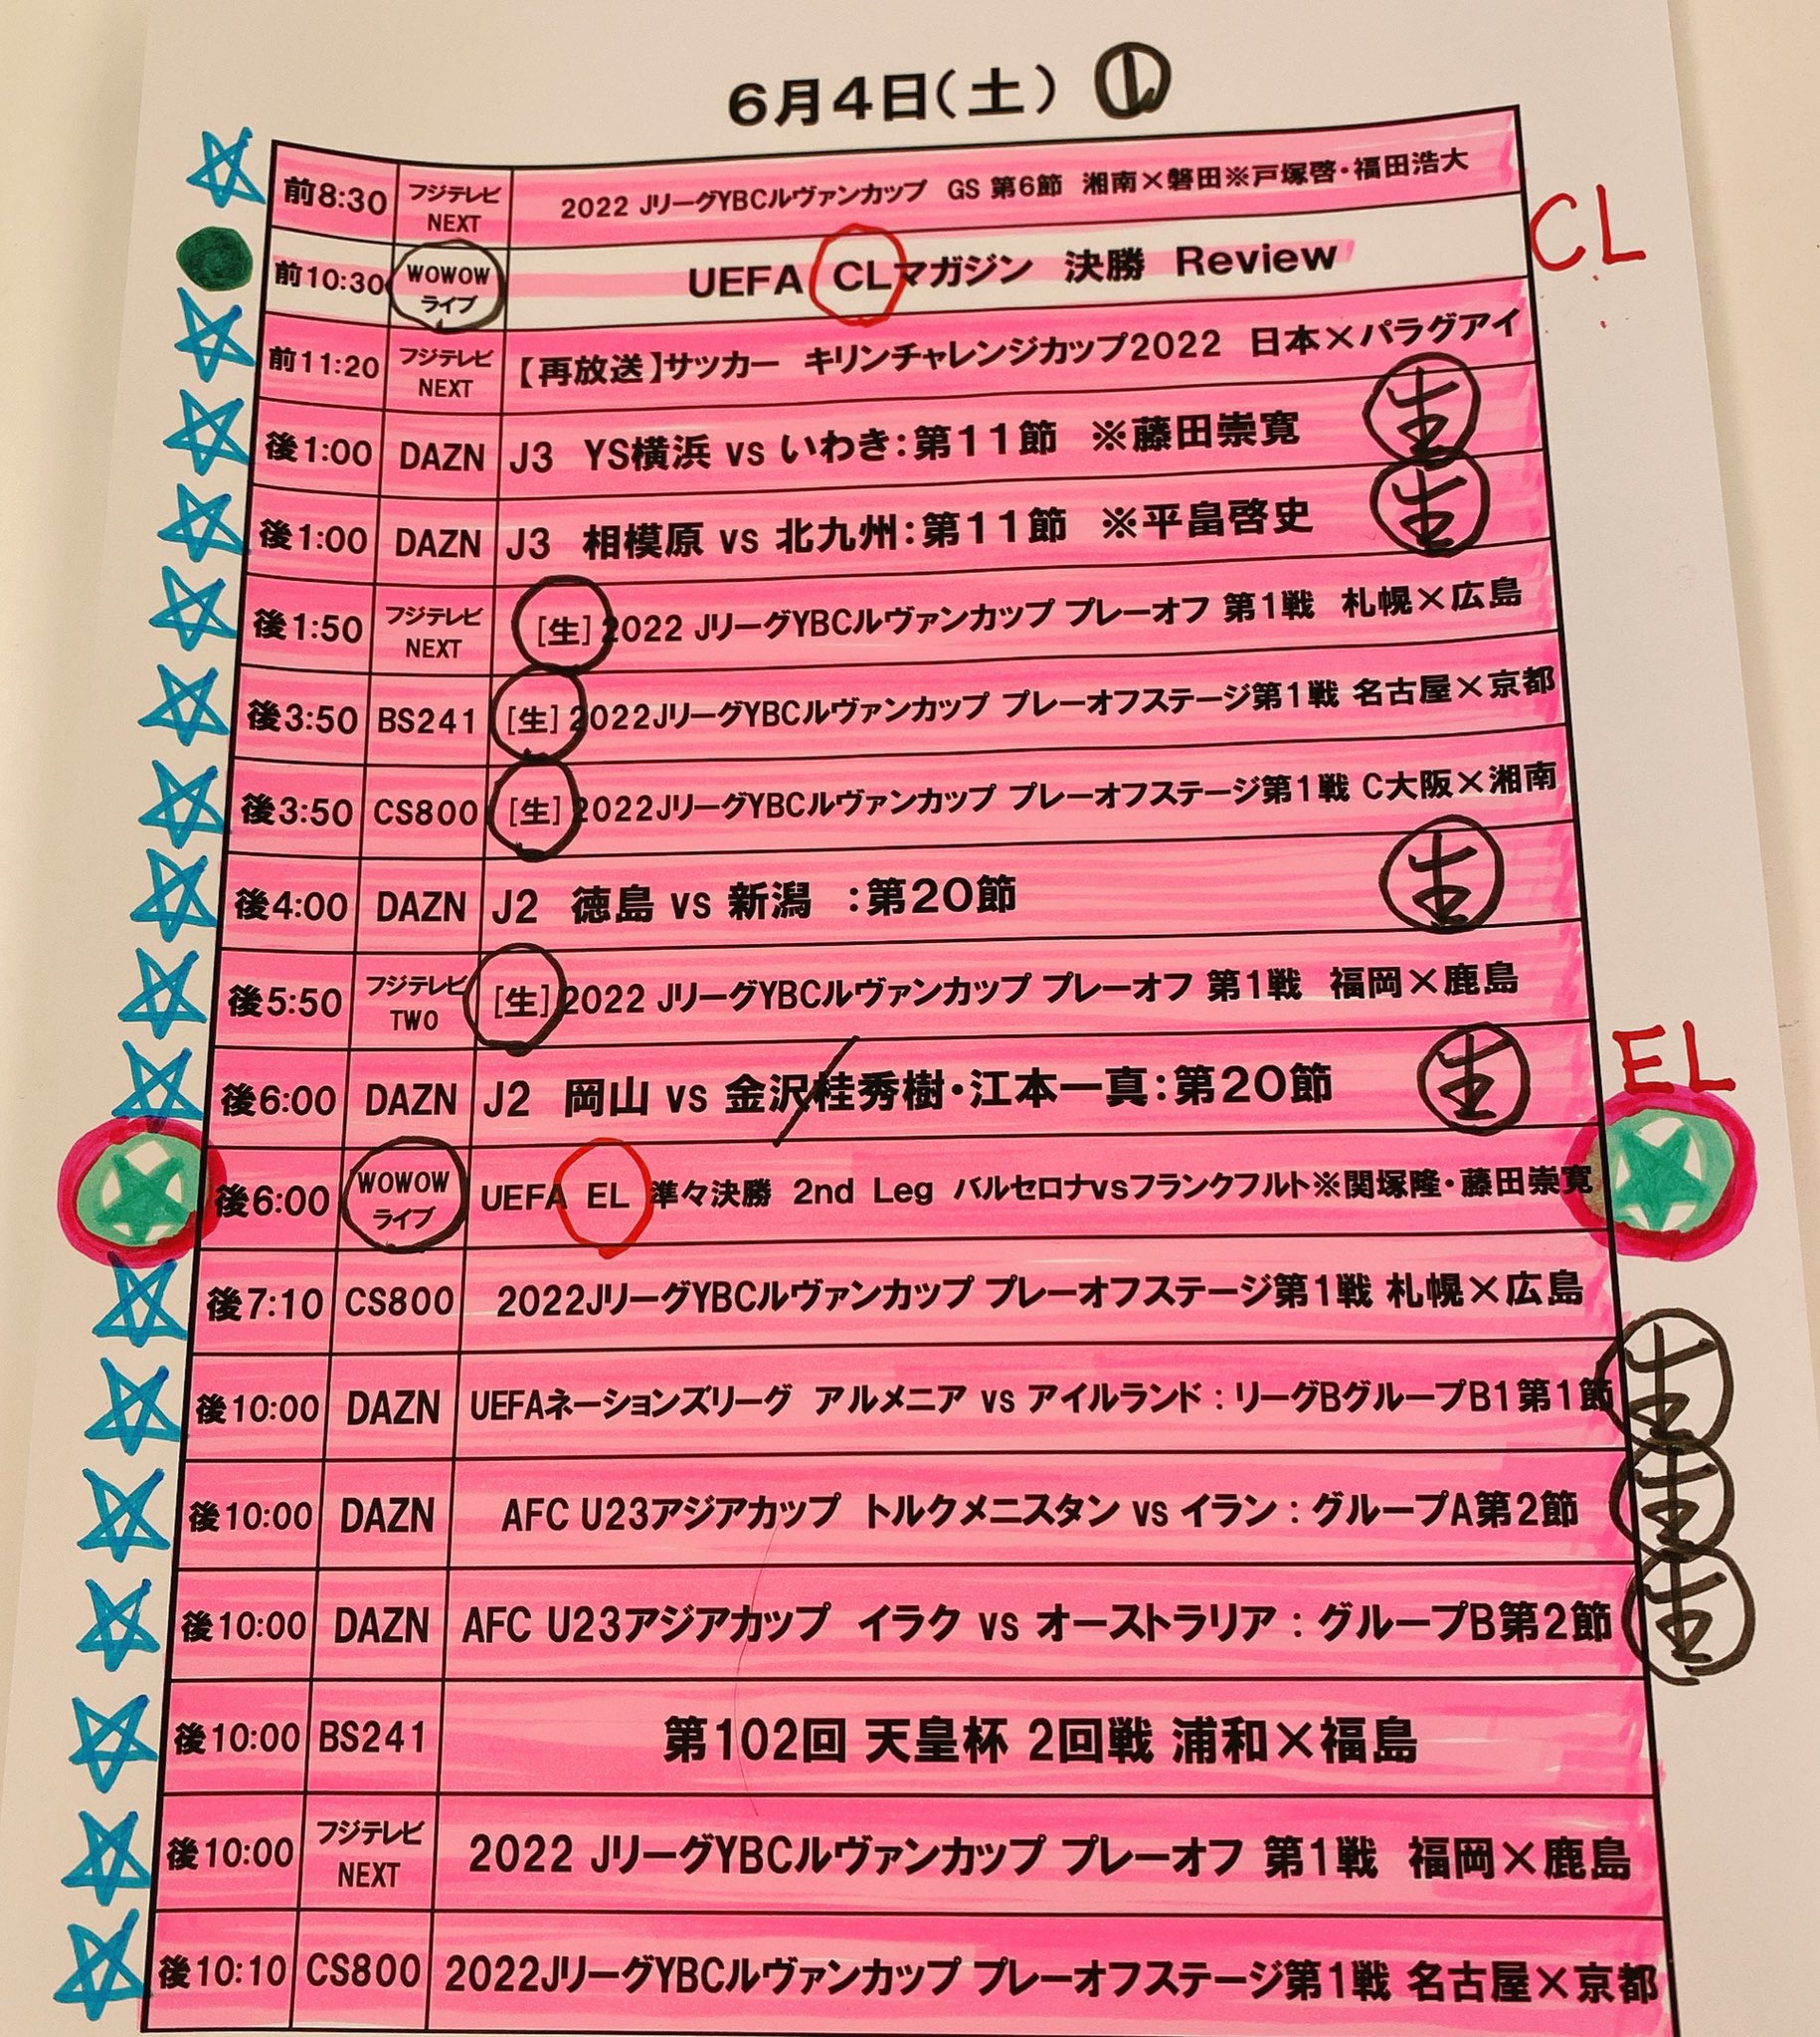 6月4日(土) ①
前8:30 フジテレビ NEXT 2022 JリーグYBCルヴァンカップ GS 第6節 湘南×磐田※戸塚啓・福田浩大
CL
前10:30 WOWOW ライブ UEFA CLマガジン 決勝 Review
前11:20 フジテレビ NEXT 【再放送】サッカー キリンチャレンジカップ2022 日本×パラグアイ
後1:00 DAZN J3 YS横浜 vs いわき:第11節 ※藤田崇寛 生
後1:00 DAZN J3 相模原 vs 北九州:第11節 ※平畠啓史 生
後1:50 フジテレビ NEXT [生]2022 JリーグYBCルヴァンカップ プレーオフ 第1戦 札幌×広島
後3:50 BS241 [生]2022JリーグYBCルヴァンカップ プレーオフステージ第1戦 名古屋×京都
後3:50 CS800 [生]2022JリーグYBCルヴァンカップ プレーオフステージ第1戦 C大阪×湘南
後4:00 DAZN J2 徳島 vs 新潟 :第20節 生
後5:50 フジテレビ TWO [生]2022 JリーグYBCルヴァンカップ プレーオフ 第1戦 福岡×鹿島
後6:00 DAZN J2 岡山 vs 金沢/桂秀樹・江本一真:第20節 生
EL
後6:00 WOWOW ライブ UEFA EL 準々決勝 2nd Leg バルセロナvsフランクフルト※関塚隆・藤田崇寛
後7:10 CS800 2022JリーグYBCルヴァンカップ プレーオフステージ第1戦 札幌×広島
後10:00 DAZN UEFAネーションズリーグ アルメニア vs アイルランド:リーグBグループB1第1節 生
後10:00 DAZN AFC U23アジアカップ トルクメニスタン vs イラン:グループA第2節 生
後10:00 DAZN AFC U23アジアカップ イラク vs オーストラリア:グループB第2節 生
後10:00 BS241 第102回 天皇杯 2回戦 浦和×福島
後10:00 フジテレビ NEXT 2022 JリーグYBCルヴァンカップ プレーオフ 第1戦 福岡×鹿島
後10:10 CS800 2022JリーグYBCルヴァンカップ プレーオフステージ第1戦 名古屋×京都